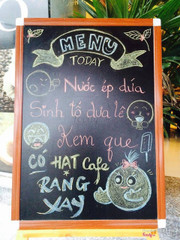 MENU
TODAY
Nước ép dứa
Sinh tố dưa lê
Kem que
CÓ HẠT Cafe
RANG
XAY